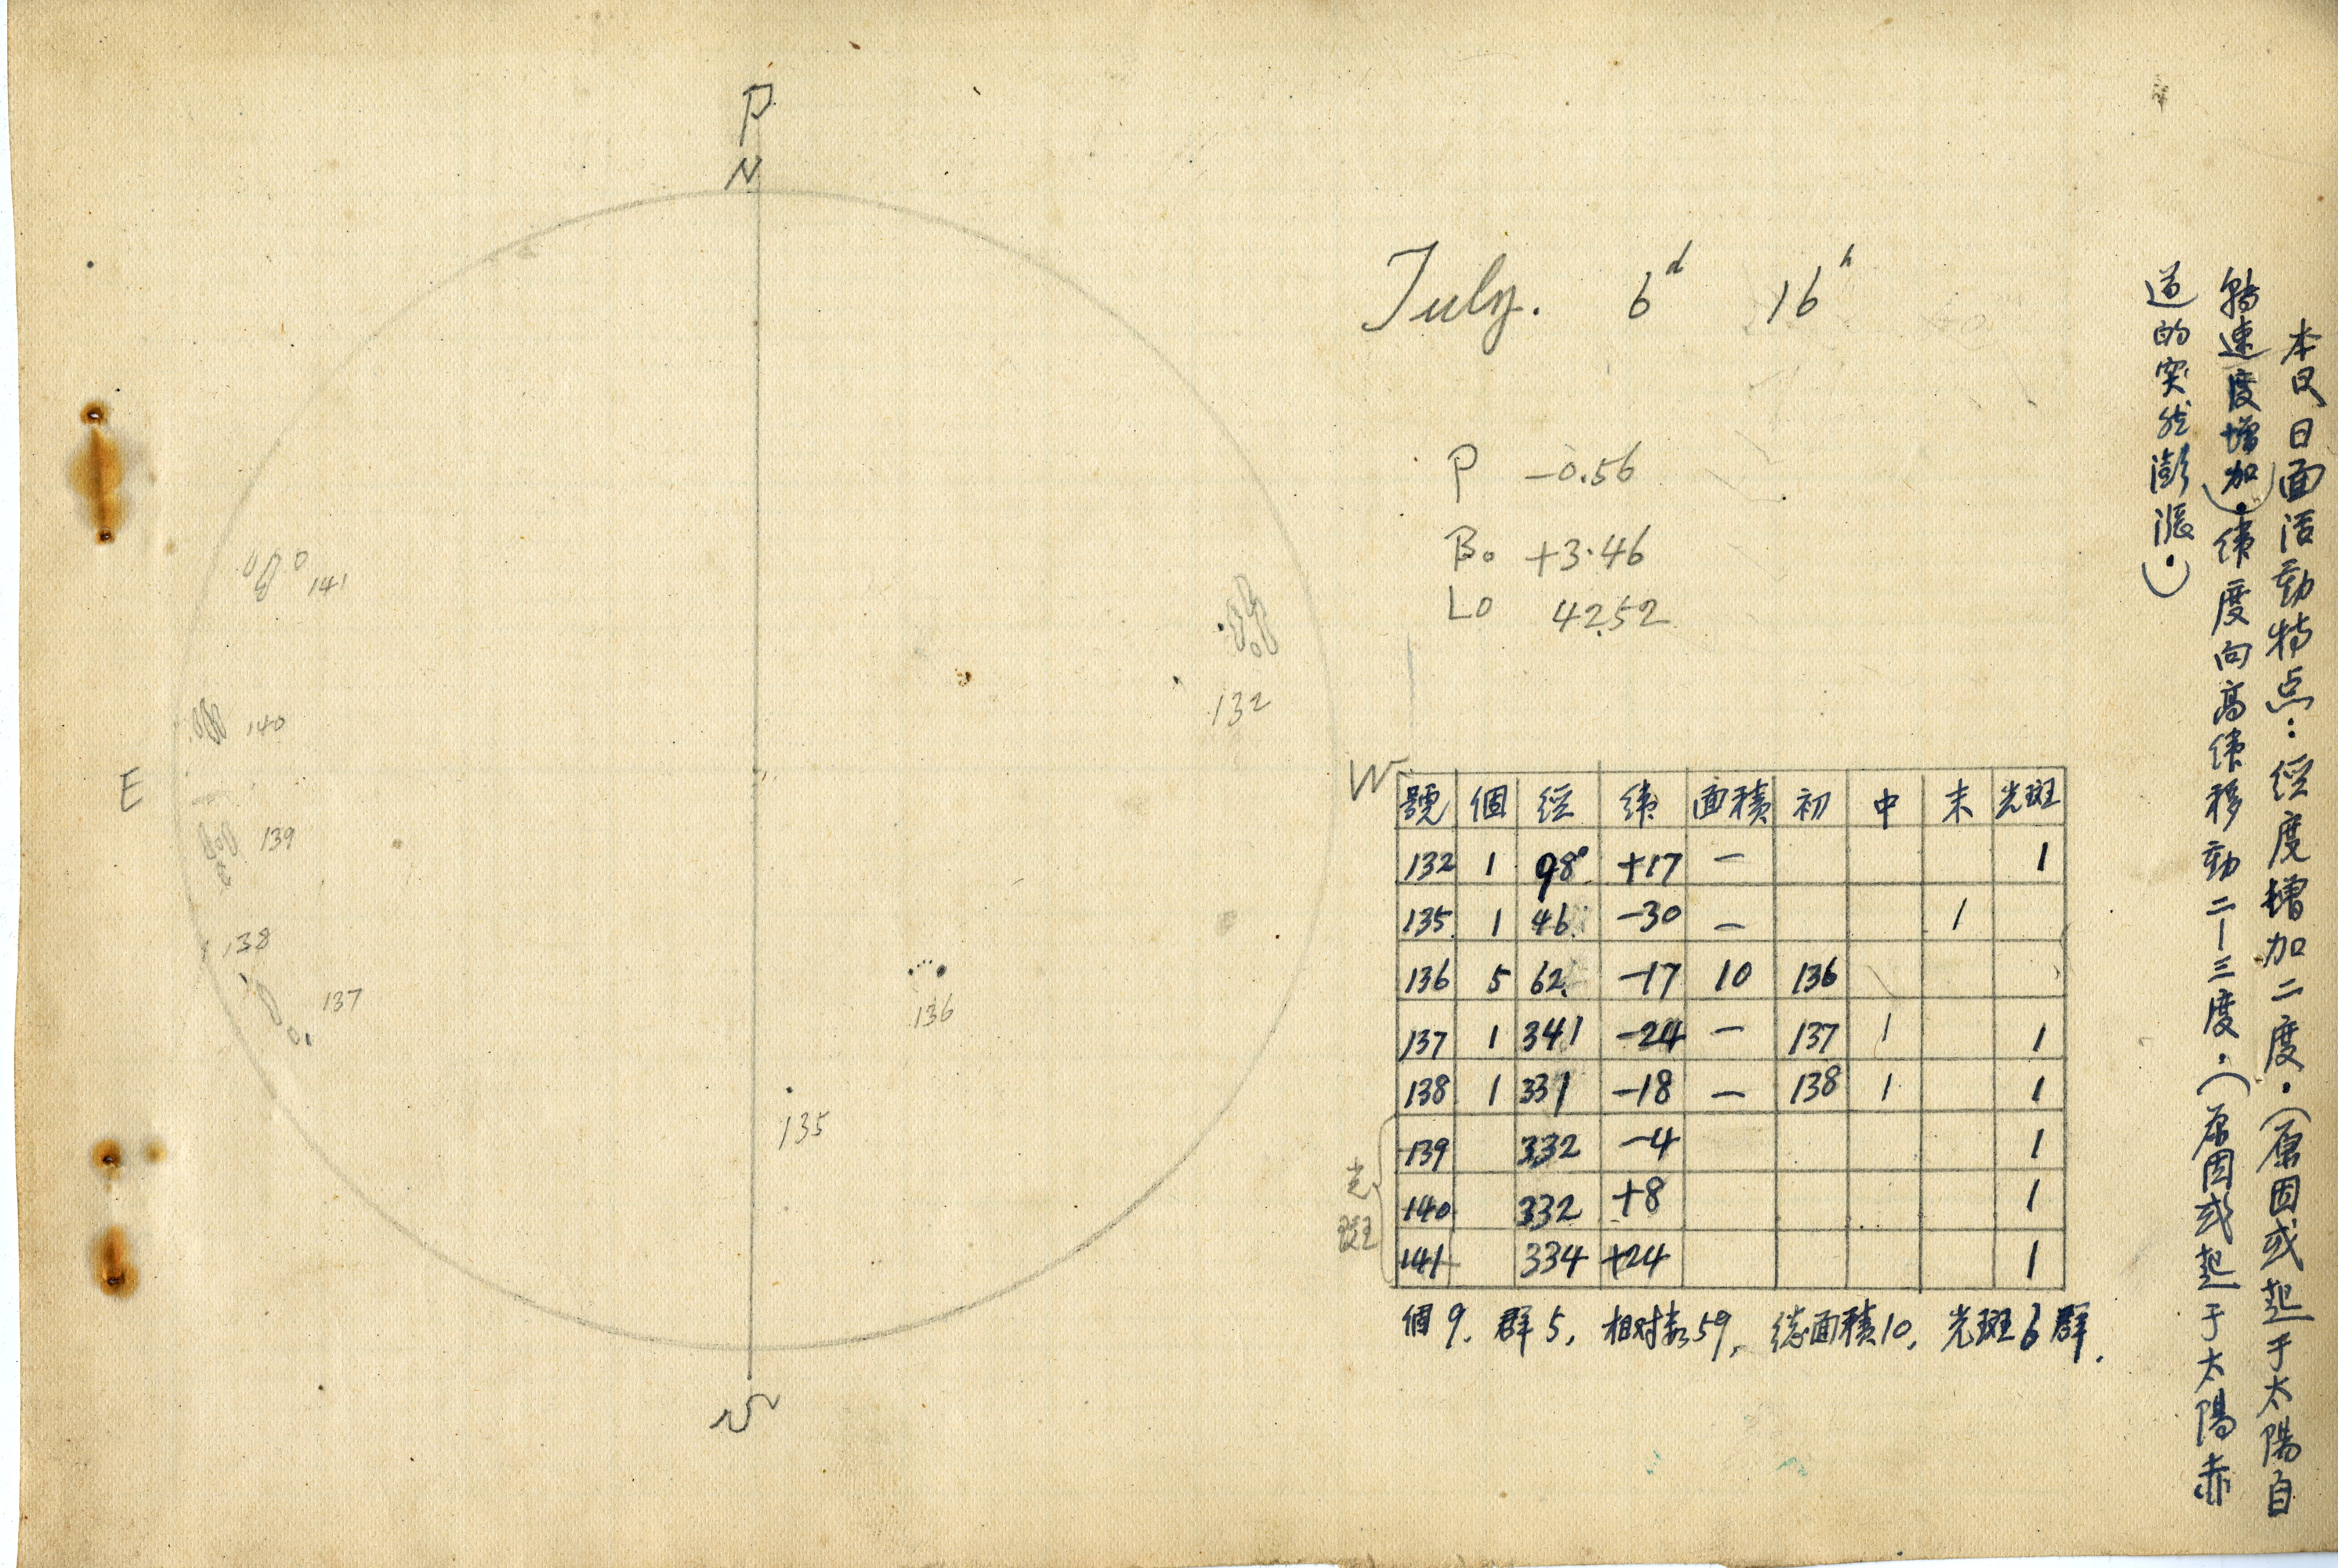 P
N
E
W
S
141
140
139
138
137
136
135
132
July. 6d 16h
P -0.56
B0 +3.46
L0 42.52
號 個 經 緯 面積 初 中 末 光斑
132 1 98° +17 — 1
135 1 46 -30 — 1
136 5 62 -17 10 136
137 1 341 -24 — 137 1 1
138 1 331 -18 — 138 1 1
139 332 -4 1
140 332 +8 1
141 334 +24 1
光斑
個9. 群5, 相对数59, 總面積10, 光斑6群.
本日面活動特点:經度增加二度.(原因或起于太陽自
轉速度增加).緯度向高緯移動二—三度.(原因或起于太陽赤
道的突然澎漲.)